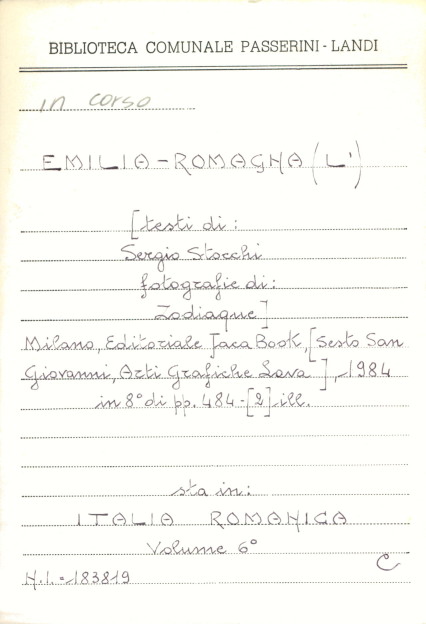 BIBLIOTECA COMUNALE PASSERINI-LANDI
in corso
EMILIA-ROMAGNA (L')
[testi di:
Sergio Stocchi
fotografie di:
Zodiaque]
Milano, Editoriale Jaca Book, [Sesto San
Giovanni, Arti Grafiche Lava], 1984
in 8° di pp. 484-[2] ill.
sta in:
ITALIA ROMANICA
Volume 6°
C
N.I.=183819